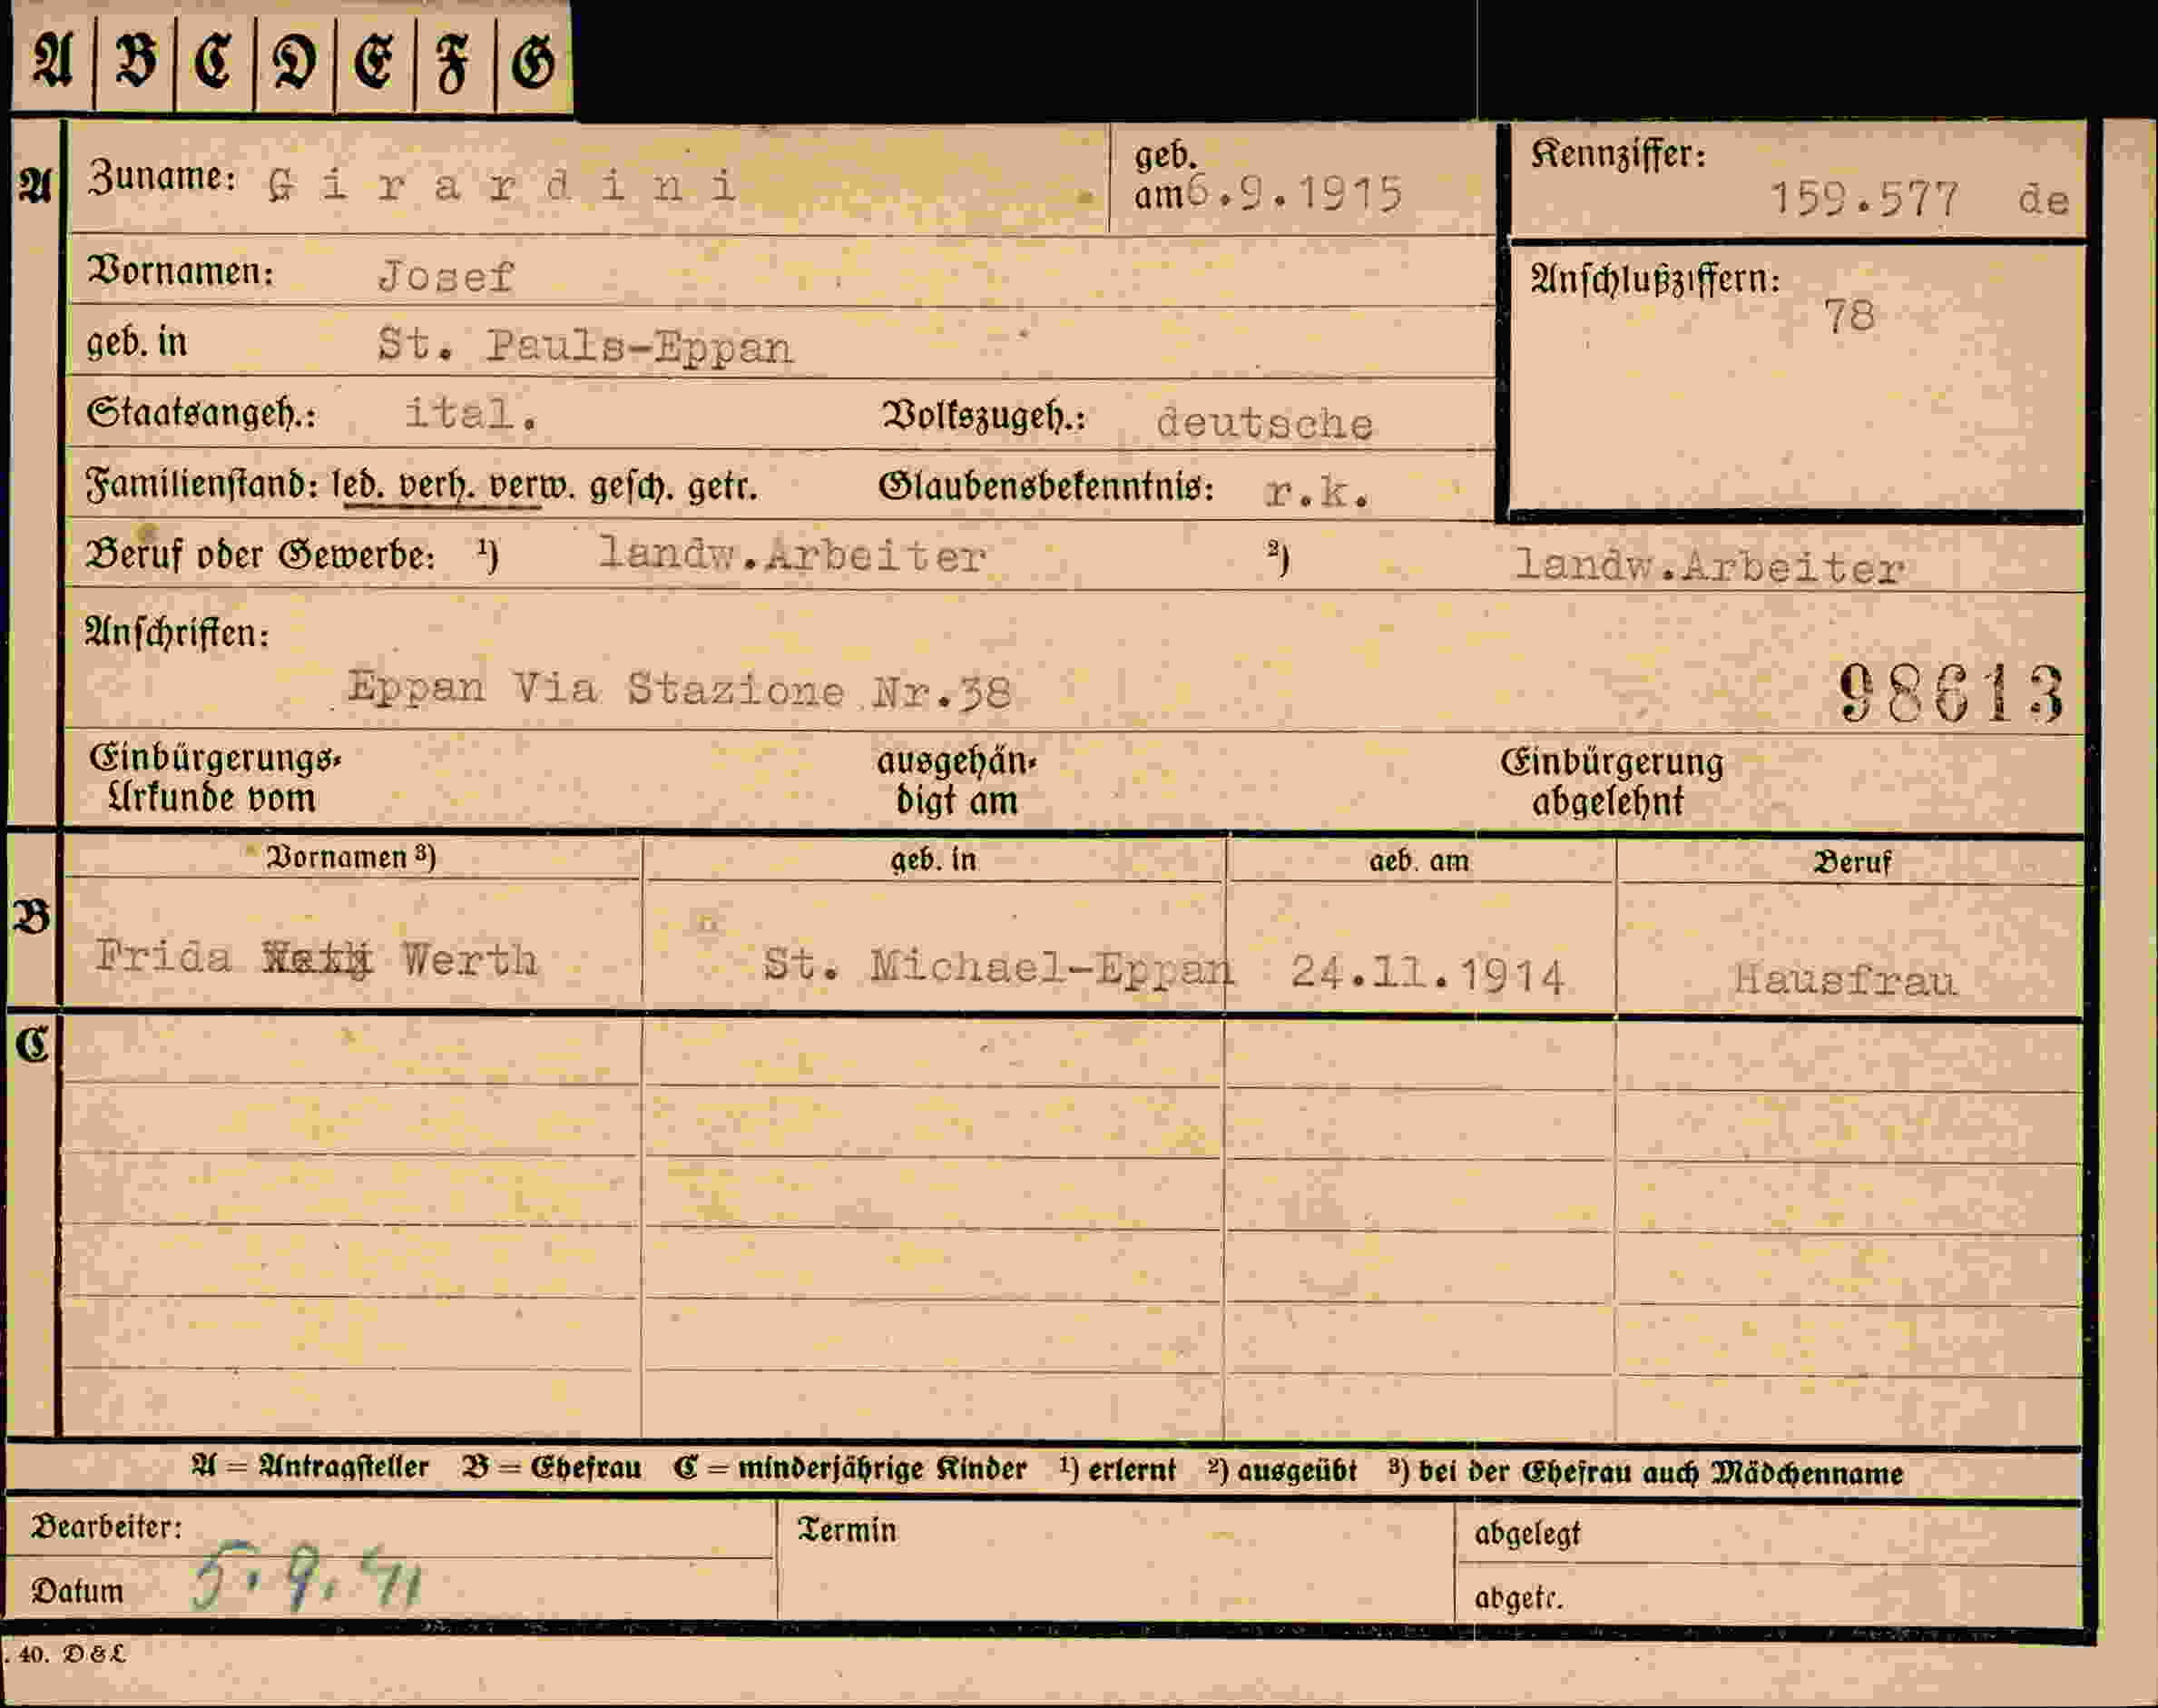 A B C D E F G
A Zuname: Girardini geb. am 6.9.1915 Kennziffer: 159.577 de
Vornamen: Josef Anschlußziffern: 78
geb. in St. Pauls-Eppan
Staatsangeh.: ital. Volkszugeh.: deutsche
Familienstand: led. verh. verw. gesch. getr. Glaubensbekenntnis: r.k.
Beruf oder Gewerbe: ¹) landw.Arbeiter ²) landw.Arbeiter
Anschriften:
Eppan Via Stazione Nr.38 98613
Einbürgerungs- ausgehän- Einbürgerung
Urkunde vom digt am abgelehnt
Vornamen ³) geb. in geb. am Beruf
B Frida Werth St. Michael-Eppan 24.11.1914 Hausfrau
C
A = Antragsteller B = Ehefrau C = minderjährige Kinder ¹) erlernt ²) ausgeübt ³) bei der Ehefrau auch Mädchenname
Bearbeiter: Termin abgelegt
Datum 5.9.41 abgetr.
. 40. D & L